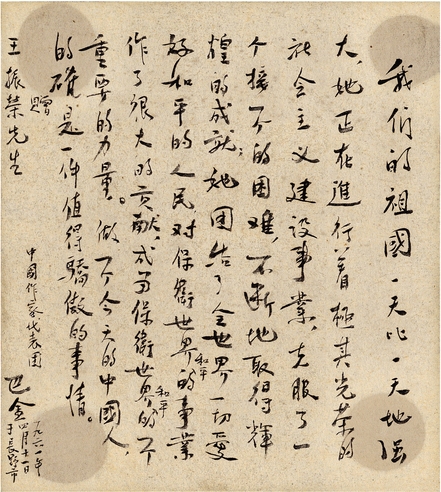 我们的祖國一天比一天地强
大，她正在進行着極其光荣的
社会主义建設事業，克服了一
个接一个的困难，不断地取得輝
煌的成就；她团结了全世界一切爱
好和平的人民对保衛世界和平的事業
作了很大的贡献，成为保衛世界和平的一个
重要的力量。做一个今天的中國人，
的確是一件值得驕傲的事情。
贈
王振榮先生
中國作家代表团 巴金
一九六一年
四月十一日
于長野市